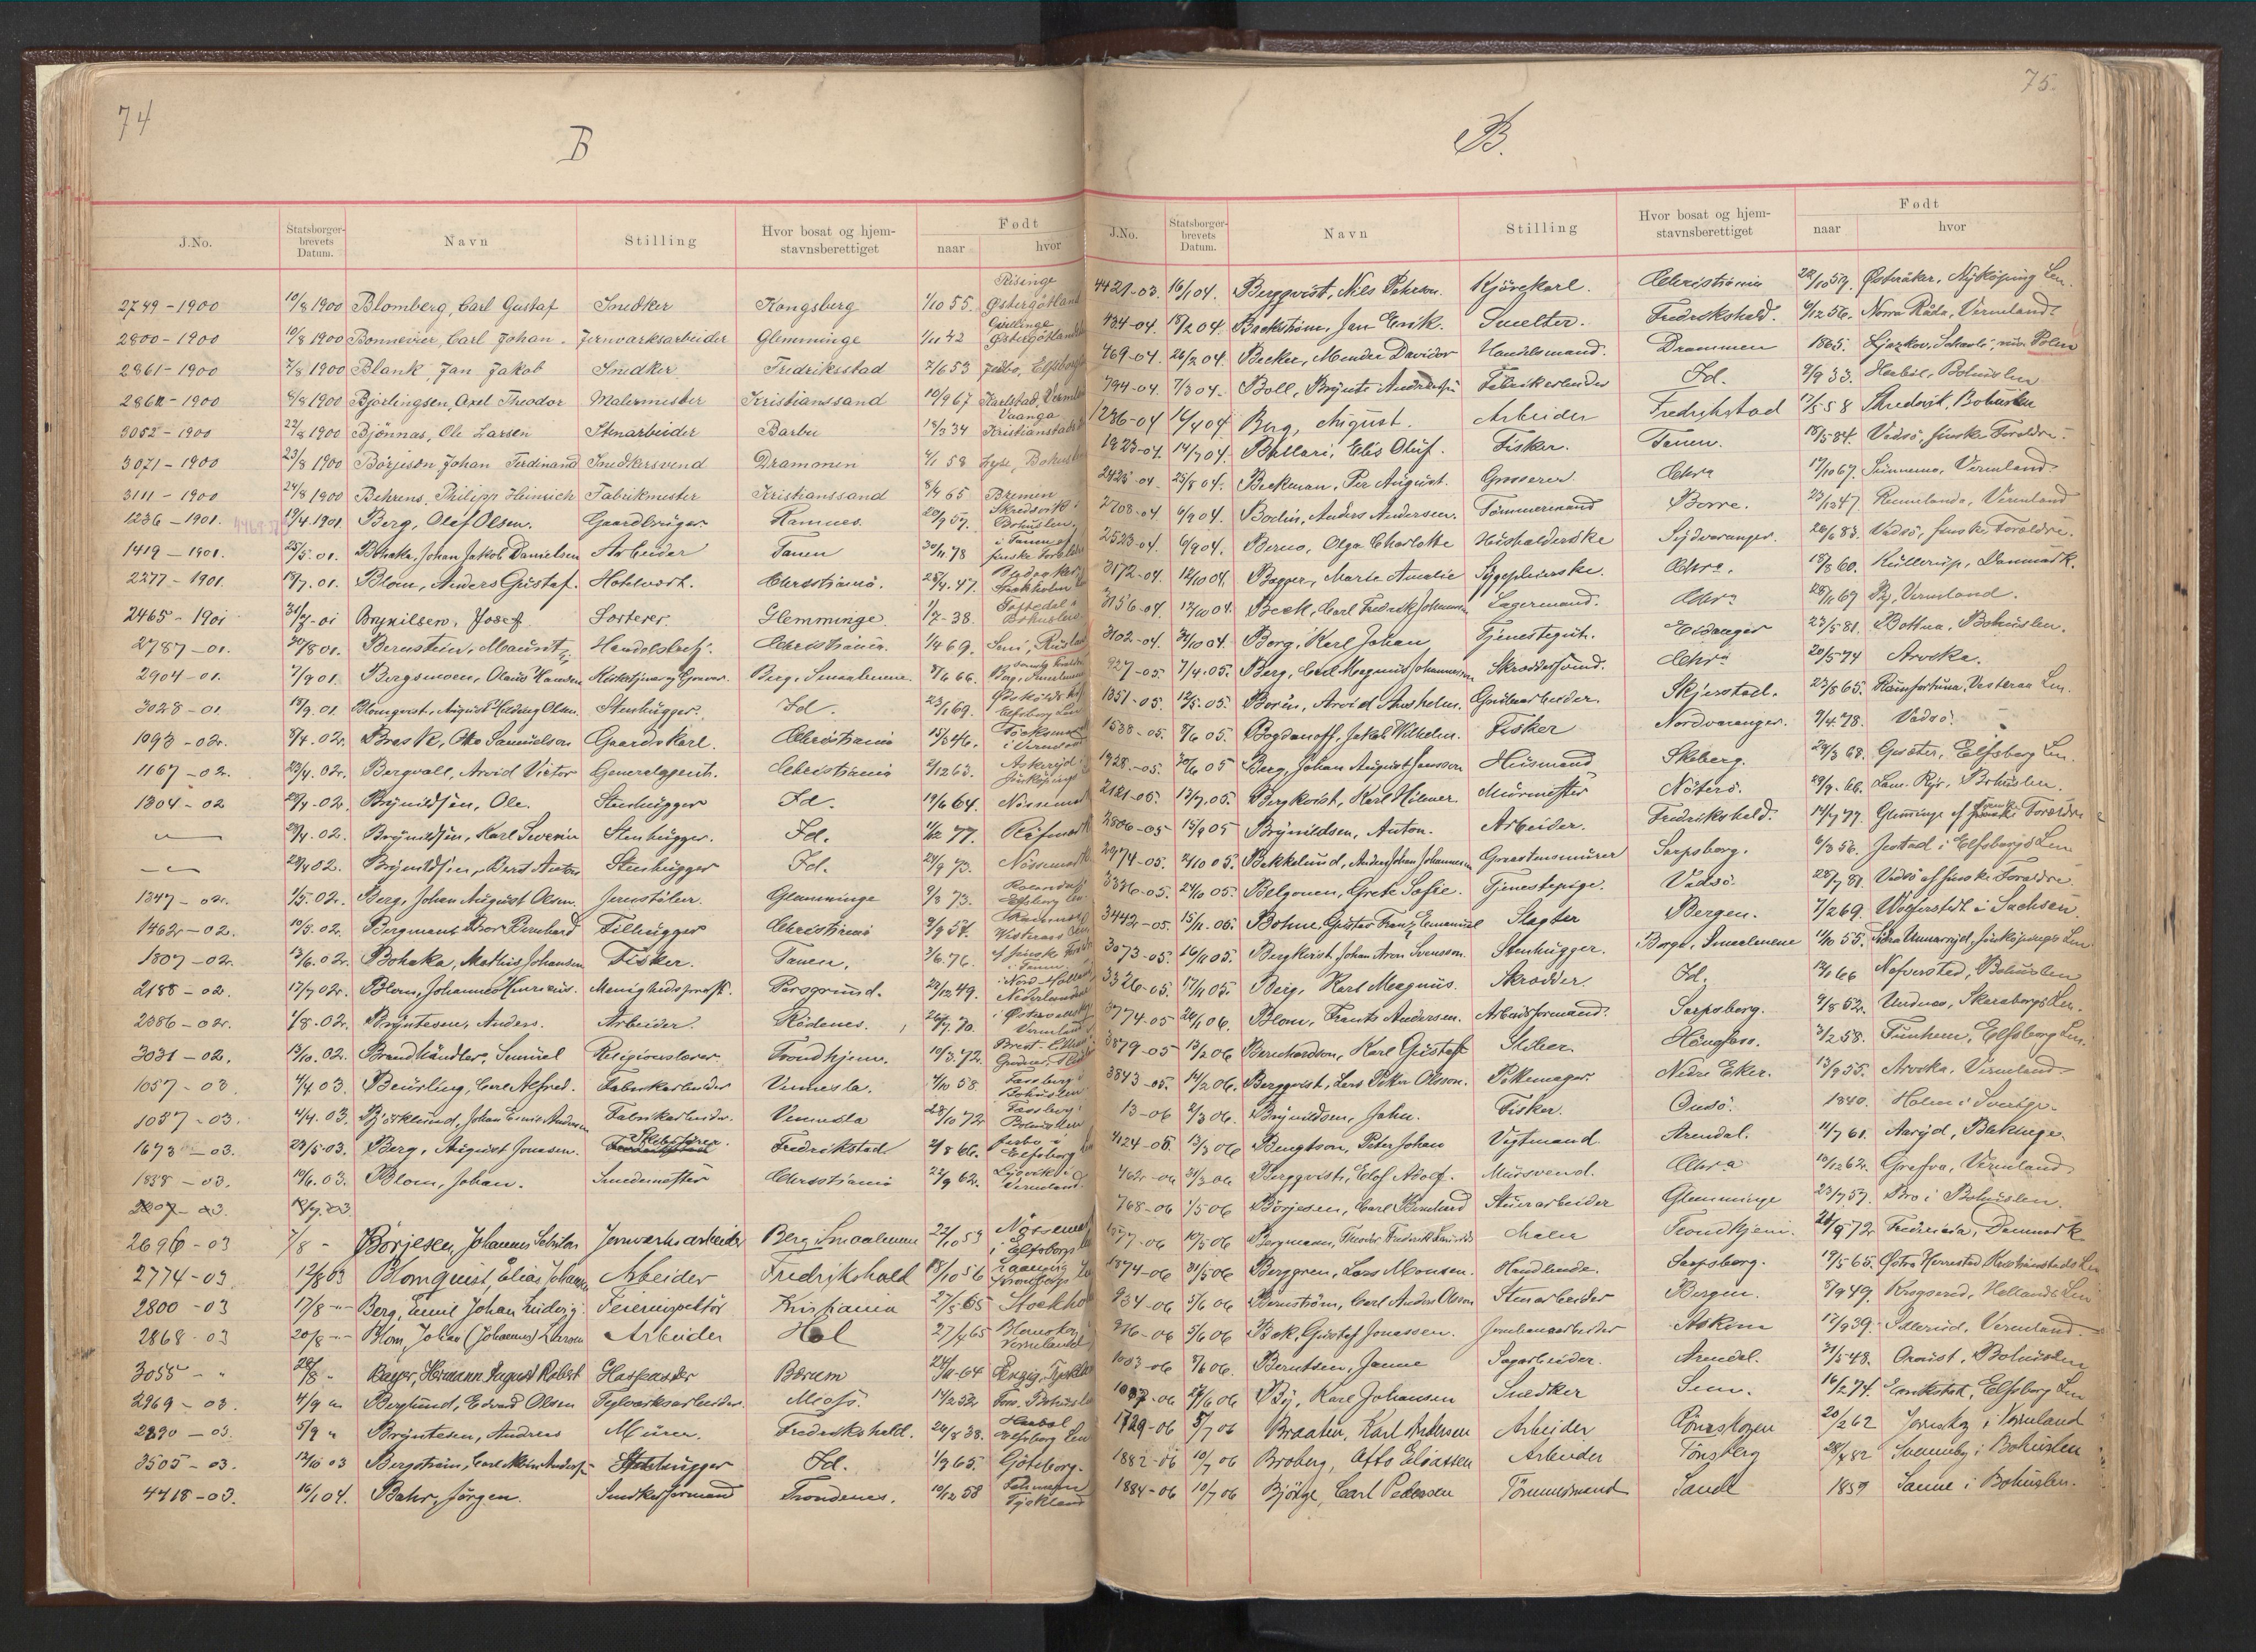 74
B
J.No. Statsborger-brevets Datum. Navn Stilling Hvor bosat og hjem-stavnsberettiget Født naar hvor
2749-1900 10/8 1900 Blomberg, Carl Gustaf Snedker Kongsberg 1/10 55. Risinge Østergötland
2800-1900 10/8 1900 Bonnevier, Carl Johan. Jernværksarbeider Glemminge 1/11 42 Østergötland
2861-1900 7/8 1900 Blank, Jan Jakob Snedker Fredriksstad 7/6 53
2862-1900 8/8 1900 Bjørlingsen, Axel Theodor Malermester Kristianssand 10/9 67 Karlstad, Verml
3052-1900 22/8 1900 Bjönnas, Ole Larsen Stenarbeider Barbu 18/3 34 Vaanga Kristianstads
3071-1900 23/8 1900 Börjeson Johan Ferdinand Snedkersvend Drammen 4/1 58 Lyse, Bohus
3111-1900 24/8 1900 Behrens, Philipp Heinrich Fabrikmester Kristianssand 8/4 65 Bremen
1236-1901. 19/4 1901. Berg, Olef Olsen. Gaardbruger Ramnes. 20/9 57. Skredsvik i Bohuslen
1419-1901. 25/5.01. Bohaka, Johan Jakob Danielsen Arbeider Tanen 30/11 78 i Tanen af finske Foreldre
2277-1901. 19/7.01. Blom, Anders Gustaf. Hotelvært. Christiania. 28/4.47. Stockholm
2465-1901 31/7-01 Brynilsen, Josef Sorterer. Glemminge. 1/7-38. Tossedal i Bohuslen
2787-01. 20/8 01. Bernstein, Mauritz Handelsbetj. Christiania. 1/4 69.
2904-01. 7/9 01. Bergsmoen, Olaus Hansen Kirketjener og Graver. Berg, Smaalenene. 8/6 66.
3028-01 19/9.01. Blomqvist, August Hedvig Olsen. Stenhugger. Id. 23/1 69. Elfsborg Len
1093-02. 8/4.02. Brask, Otto Samuelson Gaardskarl. Christiania 15/3 46. i Vermland
1167-02. 23/4.02. Bergvall, Arvid Victor Generalagent. Christiania 2/12 63. Jönköping
1304-02 29/4-02. Brynildsen, Ole. Stenhugger Id. 19/6 64. Nössemark
29/4.02. Brynildsen, Karl Severin Stenhugger. Id. 11/12 77. Refsmark
29/4 02. Brynildsen, Bert Anton Stenhugger Id. 24/9 73. Nössemark
1347-02. 1/5.02. Berg, Johan August Olsen. Jernstöber. Glemminge 9/3 73. Elfsborg Len
1462-02. 10/5.02. Bergmann, Thor Bernhard Filhugger Christiania 9/9 57. Vesteraas
1807-02. 13/6.02. Bohaka, Mathis Johansen Fisker. Tanen. 2/6.76. af finske i Tanen
2188-02. 17/7 02. Blom, Johannes Henricus. Menighedsprest. Porsgrund. 23/12 49. i Nord-Holland Nederlandene
2386-02. 1/8-02. Bryntesen, Anders. Arbeider. Rödenes. 26/7.70. Vermland
3031-02. 13/10.02. Brandhändler, Samuel Religionslærer. Trondhjem. 19/3.72. Brest-
1057-03 4/4 03. Beurling, Carl Alfred. Fabrikarbeider Vennesla. 4/10 58. Bohuslen
1037-03. 4/4.03. Björklund, Johan Ernst Andersen Fabrikarbeider. Vennesla 28/10 72 Bohuslen
1673-03. 23/5-03. Berg, August Jonasen. Skibsfører. Fredrikstad. 2/8 66. i Elfsborg
1838-03. 19/6.03. Blom, Johan. Smedemester Christiania 22/9 62. Vermland.
2307-03. 18/7.03.
2696-03 7/8 - Börjesen, Johannes Jernværksarbeider Berg Smaalenene 22/10 53 i Elfsborgs
2774-03 12/8 03 Blomquist, Elias Johannes Arbeider Fredrikshald 18/10 56
2800-03 17/8 -"- Berg, Emil Johan Ludvig. Feierinspektör Kristiania 27/5 65 Stockholm
2868-03 20/8 -"- Blom, Johan (Johannes) Larsen Arbeider Hol 27/4 65 Vermland
3055-" 28/8 - Bayer, Hermann August Robert Bærum 24/11-64
2969-03. 4/9 " Berglund, Edvard Olsen Teglværksarbeider. Moss. 14/2 52
2890-03. 5/9 " Bryntesen, Andreas Murer. Fredrikshald. 24/8 38. Elfsborg Len
3505-03. 12/10 03 Bergström, Carl Albin Anders Stenhugger Id. 1/9 65. Göteborg.
4418-03. 16/1 04. Bahr, Jörgen. Snedkerformand Trondenes. 10/12 58 Tyskland
75.
B.
J.No. Statsborger-brevets Datum. Navn Stilling Hvor bosat og hjem-stavnsberettiget Født naar hvor
4421-03. 16/1 04. Bergqvist, Nils Pehrson. Kjörekarl. Christiania 22/10 57. Østeråker, Nyköping Len.
434-04. 18/2 04. Backström, Jan Erik. Smelter. Fredrikshald. 6/12 56. Norra Råda, Vermland.
469-04. 26/2 04. Becker, Mendel Davidov Handelsmand. Drammen 1865. Polen
794-04. 7/3 04. Boll, Brynte Andersen Fabrikarbeider Id. 9/9 33. Herbol, Bohuslen
1286-04 14/4 04 Berg, August. Arbeider Fredrikstad 17/5 58 Skredsvik, Bohuslen
1823-04. 14/7 04. Ballari, Elis Oluf. Fisker. Tanen. 18/5 84. Vadsö, finske Forældre.
2425-04. 25/8 04. Beckman, Per August. Grosserer Chra 17/10 67. Sunnemo, Vermland.
2708-04 6/9 04. Bodin, Anders Andersen. Tömmermand Borre. 23/12 47. Vermland
2523-04. 6/9 04. Berno, Olga Charlotte Husholderske Sydvaranger. 20/6 83. Vadsö, finske Forældre.
3172-04. 12/10 04. Bagger, Marie Amalie Sygepleierske. Chra. 18/8 60. Kullerup, Danmark.
3156-04. 17/10 04. Beck, Carl Fredrik Johannsen Lagermand. Chra 28/11 69 By, Vermland.
3102-04. 31/10 04. Borg, Karl Johan Tjenestegut. Eidanger 23/5 81. Bottna, Bohuslen.
927-05. 7/4.05. Berg, Carl Magnus Johannesen Skræddersvend. Chra 20/5 74 Arvika.
1351-05. 12/5.05. Borén, Arvid Anshelm. Grubearbeider. Skjerstad. 23/8 65. Vesteraas Len.
1538-05. 8/6 05. Bogdanoff, Jakob Wilhelm. Fisker Nordvaranger. 9/4.78. Vadsö.
1728-05. 30/6 05 Berg, Johan August Jansson Husmand Skeberg. 24/3 68. Gesäter, Elfsborg Len.
2121-05. 13/7.05. Bergkvist, Karl Hilmer Murmester Nöterö. 29/9.66. Lane-Ryr, Bohuslen.
2806-05 15/9 05 Brynildsen, Anton. Arbeider. Fredrikshald. 14/7 77. Glemminge af svenske Forældre
2974-05. 2/10 05. Bekkelund, Anders Johan Johannesen Graastensmurer Sarpsborg. 6/3 56. i Elfsborgs Len
3336-05. 24/10 05. Belgonen, Grete Sofie. Tjenestepige. Vadsö. 28/7 81. Vadsö af finske Forældre
3442-05. 15/11.05. Bohne, Gustav Franz Emanuel Slagter Bergen. 7/2 69. Wolferstedt i Sachsen.
3073-05. 16/11 05. Bergkvist, Johan Aron Svensson. Stenhugger. Borge, Smaalenene 11/10 55. Södra Unnaryd, Jönköpings Len
3326-05. 17/11 05. Berg, Karl Magnus. Skrædder. Id. 19/1 66 Nafverstad, Bohuslen
3774-05 20/1 06. Blom, Frants Andersen. Arbeidsformand. Sarpsborg. 9/8 52. Undenæs, Skaraborgs Len.
3879-05 13/2 06 Bernhardson, Karl Gustaf Sliber. Hönefoss. 3/2 58. Funhem, Elfsborg Len.
3843-05. 14/2 06. Bergqvist, Lars Peter Olsson. Pibemager. Nedre Eker. 13/9 55. Arvika, Vermland.
13-06 2/3 06. Brynildsen, John. Fisker. Onsö. 1840. Holm i Sverige.
4124-05. 13/3 06 Bengtson, Peter Johan Vegtmand. Arendal. 11/7 61. Aaryd, Blekinge.
462-06 21/3 06 Bergqvist, Elof Adolf. Mursvend. Chra 10/12 62. Grafva, Vermland.
768-06 1/5 06 Börjesen, Carl Bernhard Stenarbeider Glemminge 23/7 57. Bro i Bohuslen.
1577-06 10/5 06 Bergmann, Theodor Frederik Maler Trondhjem. 26/9 72 Fredericia, Danmark
1874-06 31/5 06 Berggren, Lars Monsen. Handlende. Sarpsborg. 19/5 65. Östra Herrestad Kristianstads Len
934-06 5/6 06 Bernström, Carl Anders Olsson Stenarbeider Bergen. 8/9 49. Krogsered, Hallands Len
916-06 5/6 06 Bek, Gustaf Jonassen. Jernbanearbeider Askim 17/9 39. Sillerud, Vermland.
1003-06 7/6 06. Berntsen, Janne Sagarbeider. Arendal. 21/5 48. Orust, Bohuslen
1097-06 27/6 06 By, Karl Johansen Snedker Sem. 16/2 74. Elfsborg Len
1729-06 5/7 06 Braaten, Karl Andersen Arbeider Rönaskogen 20/2 62 Jernskog i Vermland
1882-06 10/7 06 Broberg, Otto Eliassen Arbeider Tönsberg 28/4 82 Svenneby i Bohuslen
1884-06 10/7 06 Bjölge, Carl Pedersen Tömmermand Sande 1859 Sanne i Bohuslen.